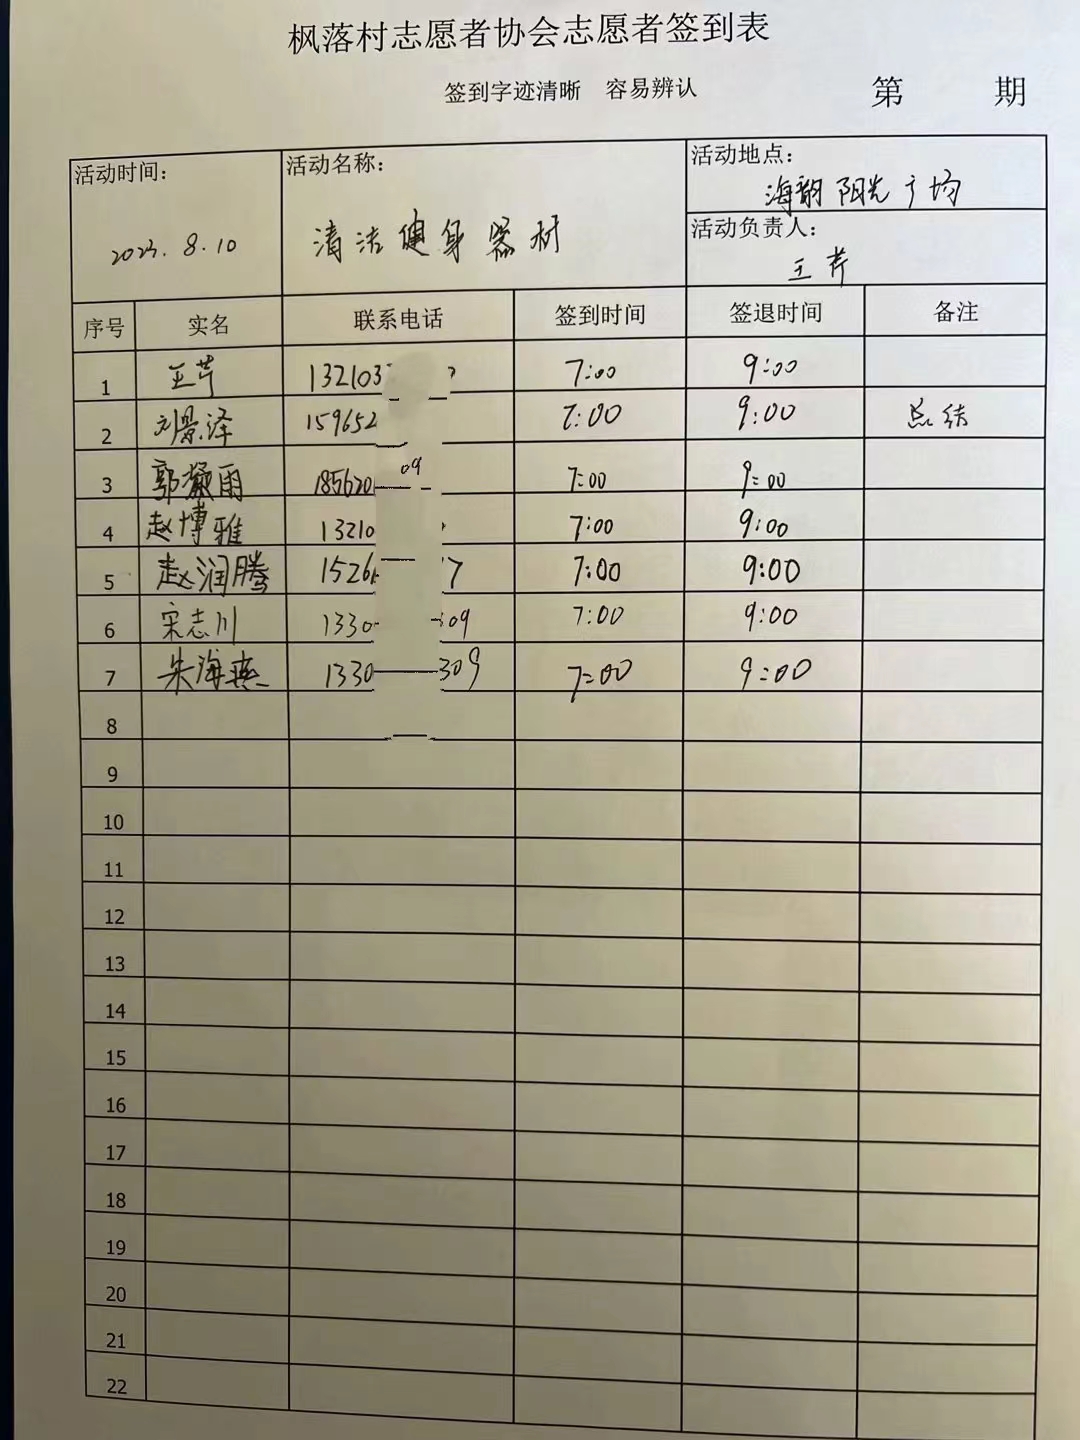 枫落村志愿者协会志愿者签到表
签到字迹清晰 容易辨认
第 期
活动时间:
2023.8.10
活动名称:
清洁健身器材
活动地点:
海韵阳光广场
活动负责人:
王芹
序号 实名 联系电话 签到时间 签退时间 备注
1 王芹 132103 7:00 9:00
2 刘景泽 159652 7:00 9:00 总结
3 郭灏雨 185620 09 7:00 9:00
4 赵博雅 13210 7:00 9:00
5 赵润腾 1526 7 7:00 9:00
6 宋志川 1330 309 7:00 9:00
7 朱海燕 1330 309 7:00 9:00
8
9
10
11
12
13
14
15
16
17
18
19
20
21
22